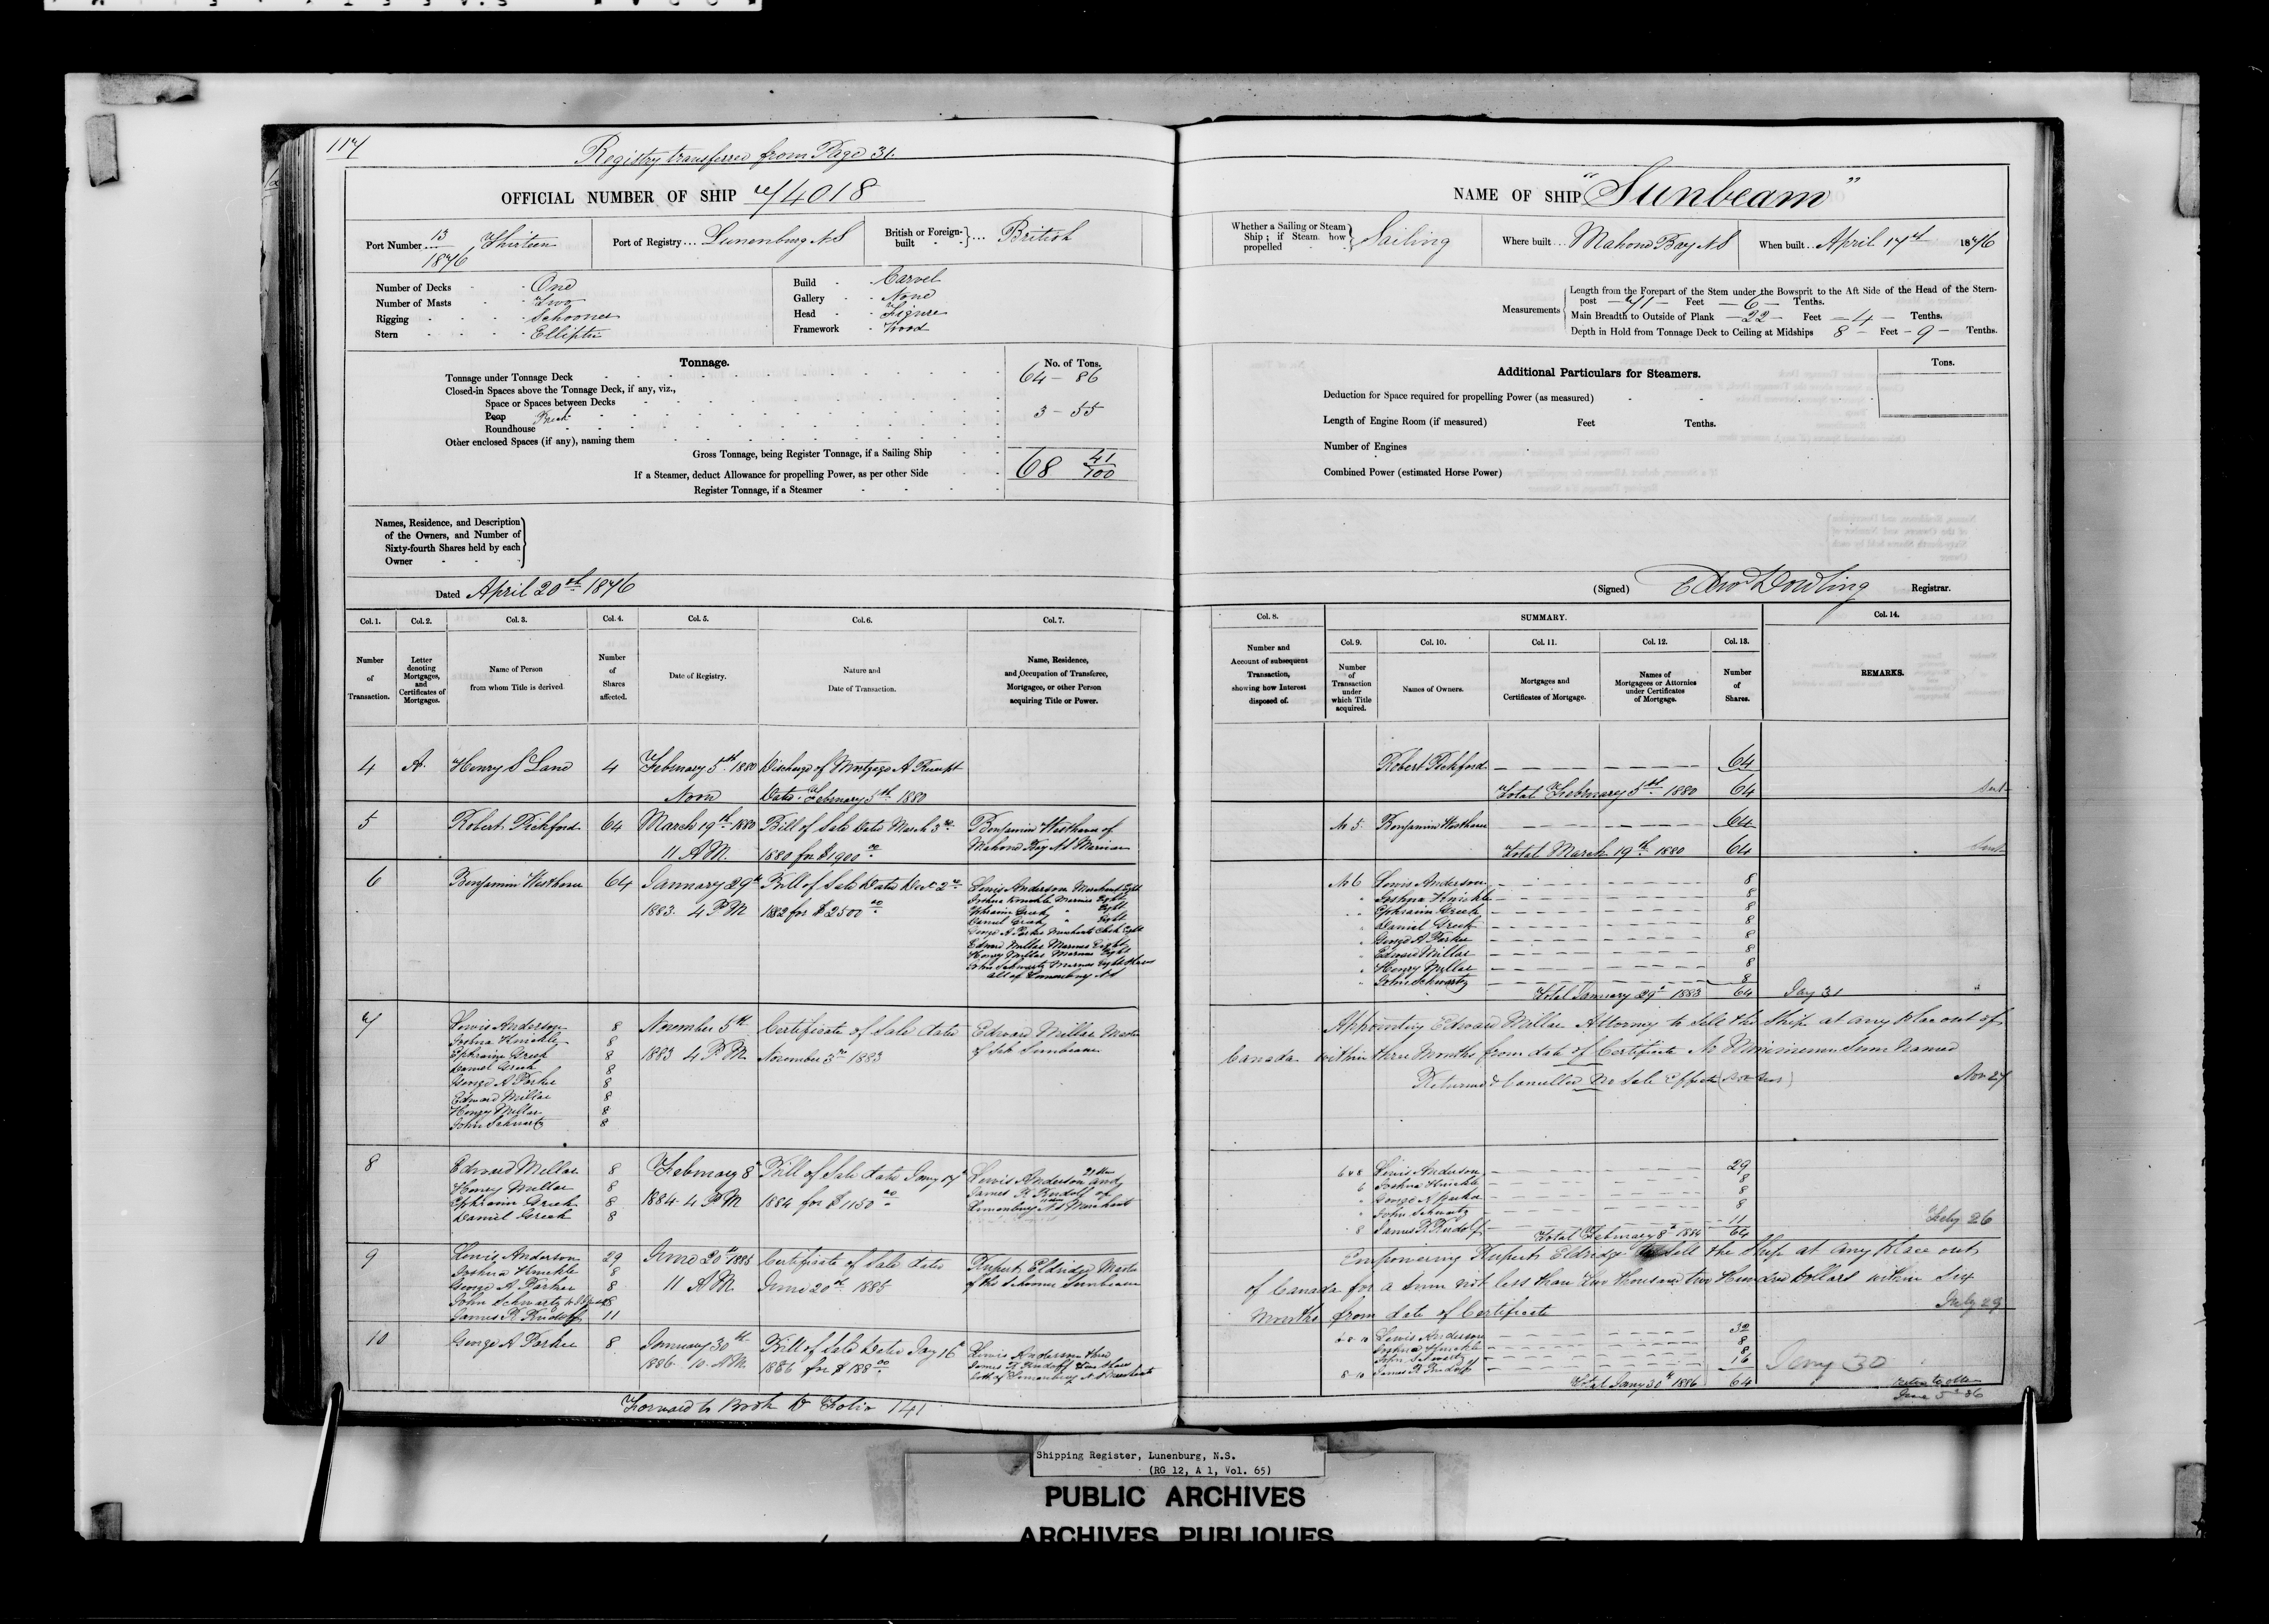 117
Registry transferred from Page 31.
OFFICIAL NUMBER OF SHIP 74018
Port Number 13/1876 Thirteen
Port of Registry... Lunenburg NS
British or Foreign-built } ... British
Number of Decks - One
Number of Masts - Two
Rigging - Schooner
Stern - Elliptic
Build - Carvel
Gallery - None
Head - Figure
Framework - Wood
Tonnage.
No. of Tons.
Tonnage under Tonnage Deck 64 - 86
Closed-in Spaces above the Tonnage Deck, if any, viz.,
Space or Spaces between Decks
Poop 3 - 55
Roundhouse
Other enclosed Spaces (if any), naming them
Gross Tonnage, being Register Tonnage, if a Sailing Ship 68 41/100
If a Steamer, deduct Allowance for propelling Power, as per other Side
Register Tonnage, if a Steamer
Names, Residence, and Description
of the Owners, and Number of
Sixty-fourth Shares held by each
Owner
Dated April 20th 1876
Col. 1. Col. 2. Col. 3. Col. 4. Col. 5. Col. 6. Col. 7.
Number of Transaction.
Letter denoting Mortgages, and Certificates of Mortgages.
Name of Person from whom Title is derived
Number of Shares affected.
Date of Registry.
Nature and Date of Transaction.
Name, Residence, and Occupation of Transferee, Mortgagee, or other Person acquiring Title or Power.
4 A. Henry S Lane 4 February 5th 1880 Discharge of Mortgage A Receipt
Noon Date February 5th 1880
5 Robert Pickford 64 March 19th 1880 Bill of Sale Date March 3rd Benjamin Westhaver of
11 A.M. 1880 for $1900 00 Mahone Bay NS Mariner
6 Benjamin Westhaver 64 January 29th Bill of Sale Dated Dec 2nd Lewis Anderson Merchant Eight
1883. 4 P M 1882 for $2500 00 Joshua Hinckle Mariner Eight
Ephraim Greek " Eight
Daniel Greek " Eight
George A Parker Merchants Clerk Eight
Edward Millar Mariner Eight
Henry Millar Mariner Eight
John Schwartz Mariner Eight Shares
all of Lunenburg NS
7 Lewis Anderson 8 November 5th Certificate of Sale dated Edward Millar Master
Joshua Hinckle 8 1883 4 P.M. November 3rd 1883 of Sch Sunbeam
Ephraim Greek 8
Daniel Greek 8
George A Parker 8
Edward Millar 8
Henry Millar 8
John Schwartz 8
8 Edward Millar 8 February 8th Bill of Sale dated Jany 17th Lewis Anderson 21 and
Henry Millar 8 1884. 4 P M 1884 for $1150 00 James R Rudolf of
Ephraim Greek 8 Lunenburg NS Merchant
Daniel Greek 8
9 Lewis Anderson 29 June 20th 1885 Certificate of Sale dated Rupert Eldridge Master
Joshua Hinckle 8 11 A M. June 20th 1885 of the Schooner Sunbeam
George A Parker 8
John Schwartz 8
James R Rudolf 11
10 George A Parker 8 January 30th Bill of Sale Dated Jany 16th Lewis Anderson three
1886. 10. A M. 1886 for $188 00 James R Rudolf five shares
both of Lunenburg N.S Merchants
Forward to Book D Folio 141
NAME OF SHIP "Sunbeam"
Whether a Sailing or Steam Ship; if Steam how propelled } Sailing
Where built... Mahone Bay NS
When built.. April 17th 1876
Measurements
Length from the Forepart of the Stem under the Bowsprit to the Aft Side of the Head of the Stern-
post — 71 — Feet — 6 — Tenths.
Main Breadth to Outside of Plank — 22 — Feet — 4 — Tenths.
Depth in Hold from Tonnage Deck to Ceiling at Midships 8 — Feet — 9 — Tenths.
Additional Particulars for Steamers.
Tons.
Deduction for Space required for propelling Power (as measured)
Length of Engine Room (if measured) Feet Tenths.
Number of Engines
Combined Power (estimated Horse Power)
(Signed) Edwd Dowling Registrar.
Col. 8. SUMMARY. Col. 14.
Col. 9. Col. 10. Col. 11. Col. 12. Col. 13.
Number and Account of subsequent Transaction, showing how Interest disposed of.
Number of Transaction under which Title acquired.
Names of Owners.
Mortgages and Certificates of Mortgage.
Names of Mortgagees or Attornies under Certificates of Mortgage.
Number of Shares.
REMARKS.
Robert Pickford 64
Total February 5th 1880 64
No 5. Benjamin Westhaver 64
Total March 19th 1880 64
No 6 Lewis Anderson 8
" Joshua Hinckle 8
" Ephraim Greek 8
" Daniel Greek 8
" George A Parker 8
" Edward Millar 8
" Henry Millar 8
" John Schwartz 8
Total January 29th 1883 64 Jany 31
Appointing Edward Millar Attorney to Sell the Ship at any Place out of
Canada within three Months from date of Certificate No Minimum Sum Named
Returned & Cancelled no Sale Effected Nov 27
6 & 8 Lewis Anderson 29
6 Joshua Hinckle 8
" George A Parker 8
" John Schwartz 8
8 James R Rudolf 11
Total February 8th 1884 64 Feby 26
Empowering Rupert Eldridge to Sell the Ship at any Place out
of Canada for a Sum not less than Two Thousand two Hundred Dollars within Six
Months from date of Certificate July 29
6. 8. 10 Lewis Anderson 32
Joshua Hinckle 8
John Schwartz 8
8 10 James R Rudolf 16
Total Jany 30th 1886 64 Jany 30
June 5th 86
Shipping Register, Lunenburg, N.S.
(RG 12, A 1, Vol. 65)
PUBLIC ARCHIVES
ARCHIVES PUBLIQUES